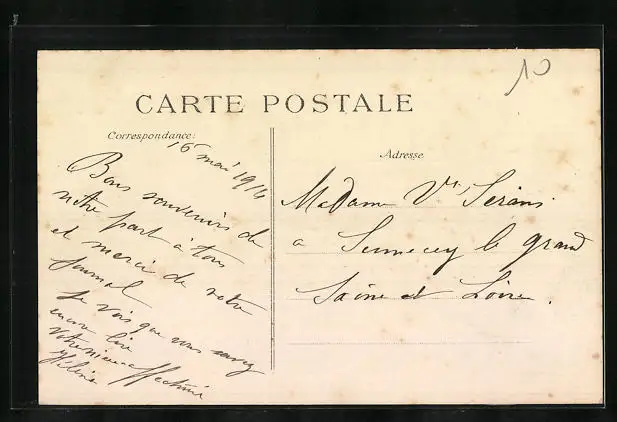 10
CARTE POSTALE
Correspondance:
Adresse
16 mai 1914
Bons souvenirs de
notre part à tous
et merci de votre
journal
Je vois que vous savez
encore lire
votre nièce
Hélène
Madame Vve Serans
a Sennecey le grand
Saône et Loire.